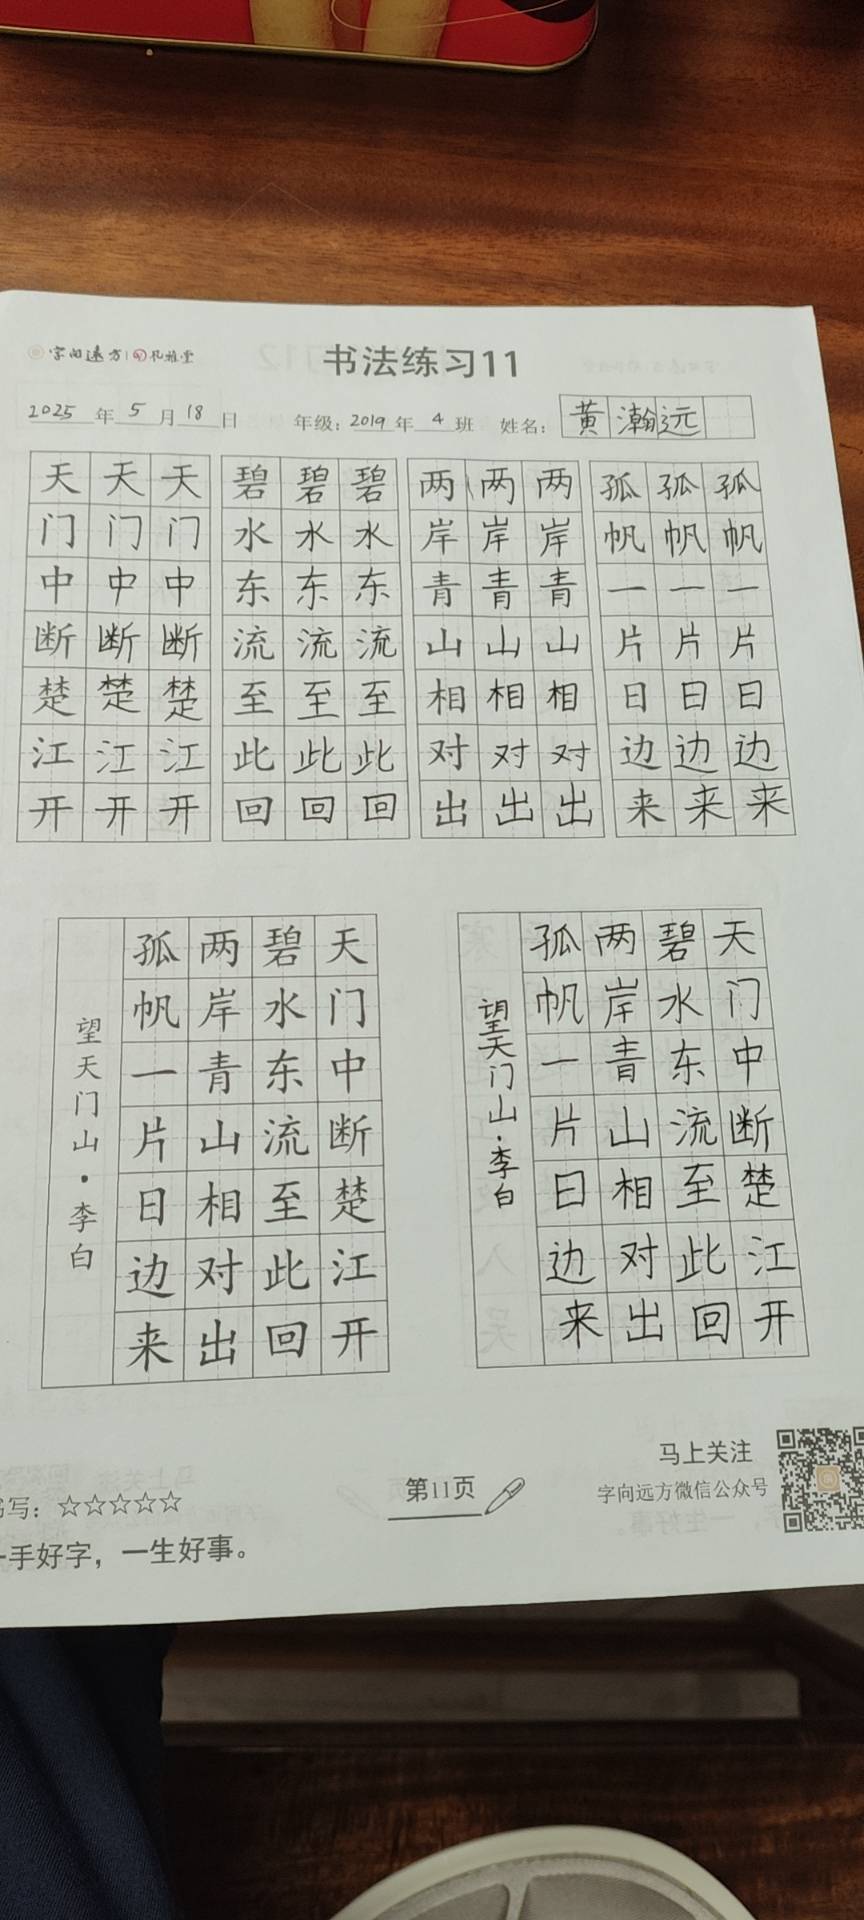 字向远方 凡雅堂
书法练习11
2025年5月18日 年级：2019年4班 姓名：黄瀚远
天天天 碧碧碧 两两两 孤孤孤
门门门 水水水 岸岸岸 帆帆帆
中中中 东东东 青青青 一一一
断断断 流流流 山山山 片片片
楚楚楚 至至至 相相相 日日日
江江江 此此此 对对对 边边边
开开开 回回回 出出出 来来来
天门中断楚江开
碧水东流至此回
两岸青山相对出
孤帆一片日边来
望天门山·李白
天门中断楚江开
碧水东流至此回
两岸青山相对出
孤帆一片日边来
望天门山·李白
写：☆☆☆☆☆
手好字，一生好事。
第11页
马上关注
字向远方微信公众号